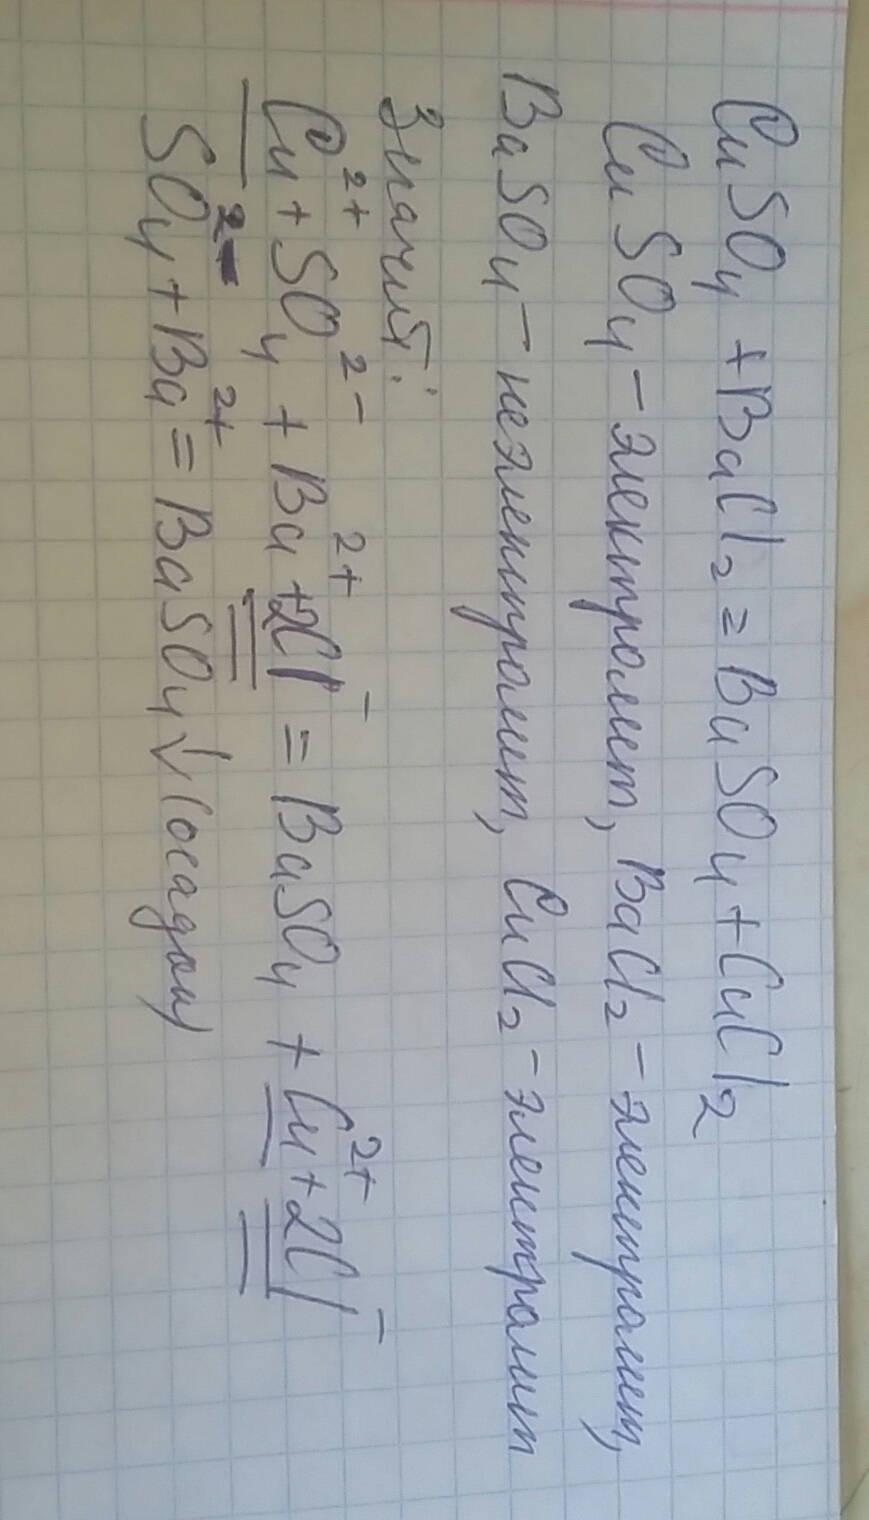 CuSO₄ + BaCl₂ = BaSO₄ + CuCl₂
CuSO₄ – электролит, BaCl₂ – электролит,
BaSO₄ – неэлектролит, CuCl₂ – электролит
Значит:
Cu²⁺ + SO₄²⁻ + Ba²⁺ + 2Cl⁻ = BaSO₄ + Cu²⁺ + 2Cl⁻
SO₄²⁻ + Ba²⁺ = BaSO₄↓ (осадок)